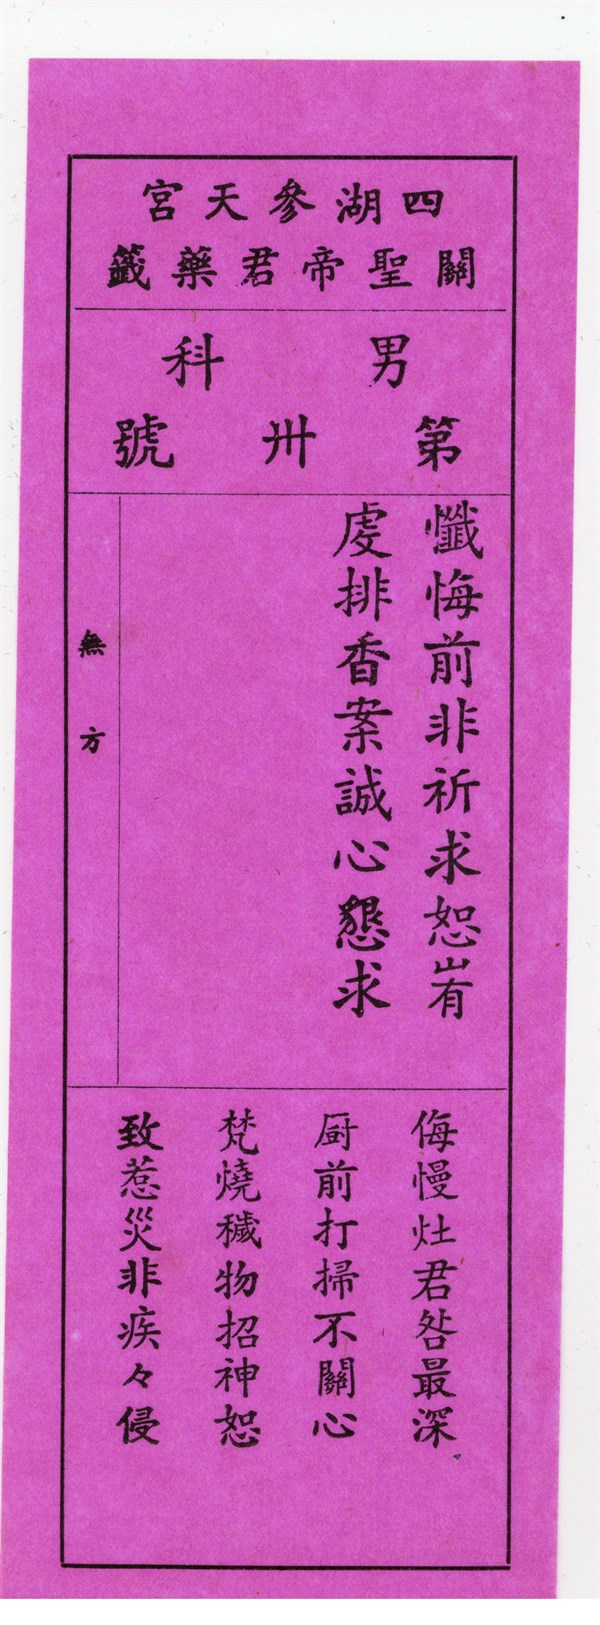 四湖參天宮
關聖帝君藥籤
男科
第卅號
懺悔前非祈求恕峟
虔排香案誠心懇求
無方
侮慢灶君咎最深
厨前打掃不關心
梵燒穢物招神恕
致惹災非疾々侵